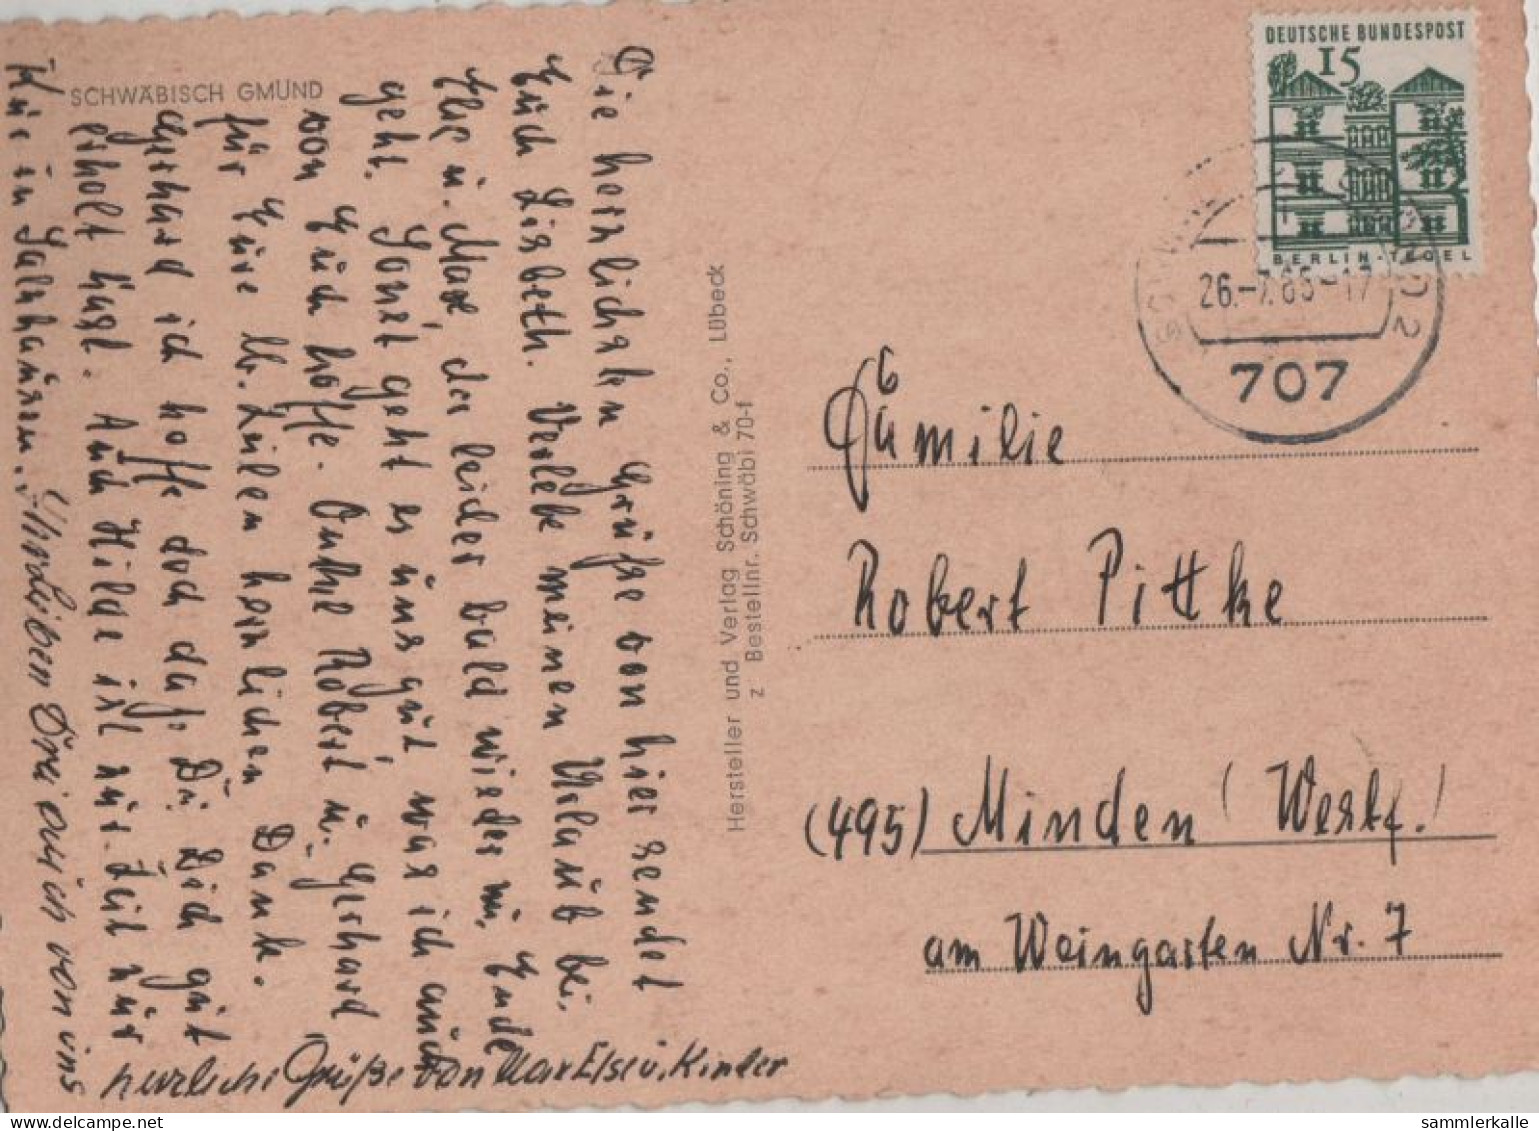 SCHWÄBISCH GMÜND
Die herzlichsten Grüße von hier sendet
Euch Lisbeth. Verlebe meinen Urlaub bei
Else u. Max, der leider bald wieder zu Ende
geht. Sonst geht es uns gut, was ich auch
von Euch hoffe. Onkel Robert u. Gerhard
für Eure lb. Zeilen herzlichen Dank.
Gerhard ich hoffe doch daß Du Dich gut
erholt hast. Auch Hilde ist zur Zeit zur
Kur in Salzhausen. Ihr Lieben Drei auch von uns
herzliche Grüße von Max Else u. Kinder
Hersteller und Verlag Schöning & Co., Lübeck
z Bestellnr. Schwäbi 70-f
DEUTSCHE BUNDESPOST
15
BERLIN-TEGEL
26.-7.65-17
707
Familie
Robert Pittke
(495) Minden (Westf.)
am Weingarten Nr. 7
sammlerkalle